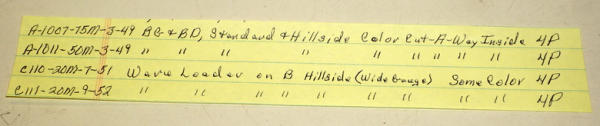 A-1007-75M-3-49 BG & BD, Standard & Hillside Color Cut-A-Way Inside 4P
A-1011-50M-3-49 " " " " " " " " " 4P
C110-20M-7-51 Ware Loader on B Hillside (Wide Gauge) Some Color 4P
C111-20M-9-52 " " " " " " " " 4P